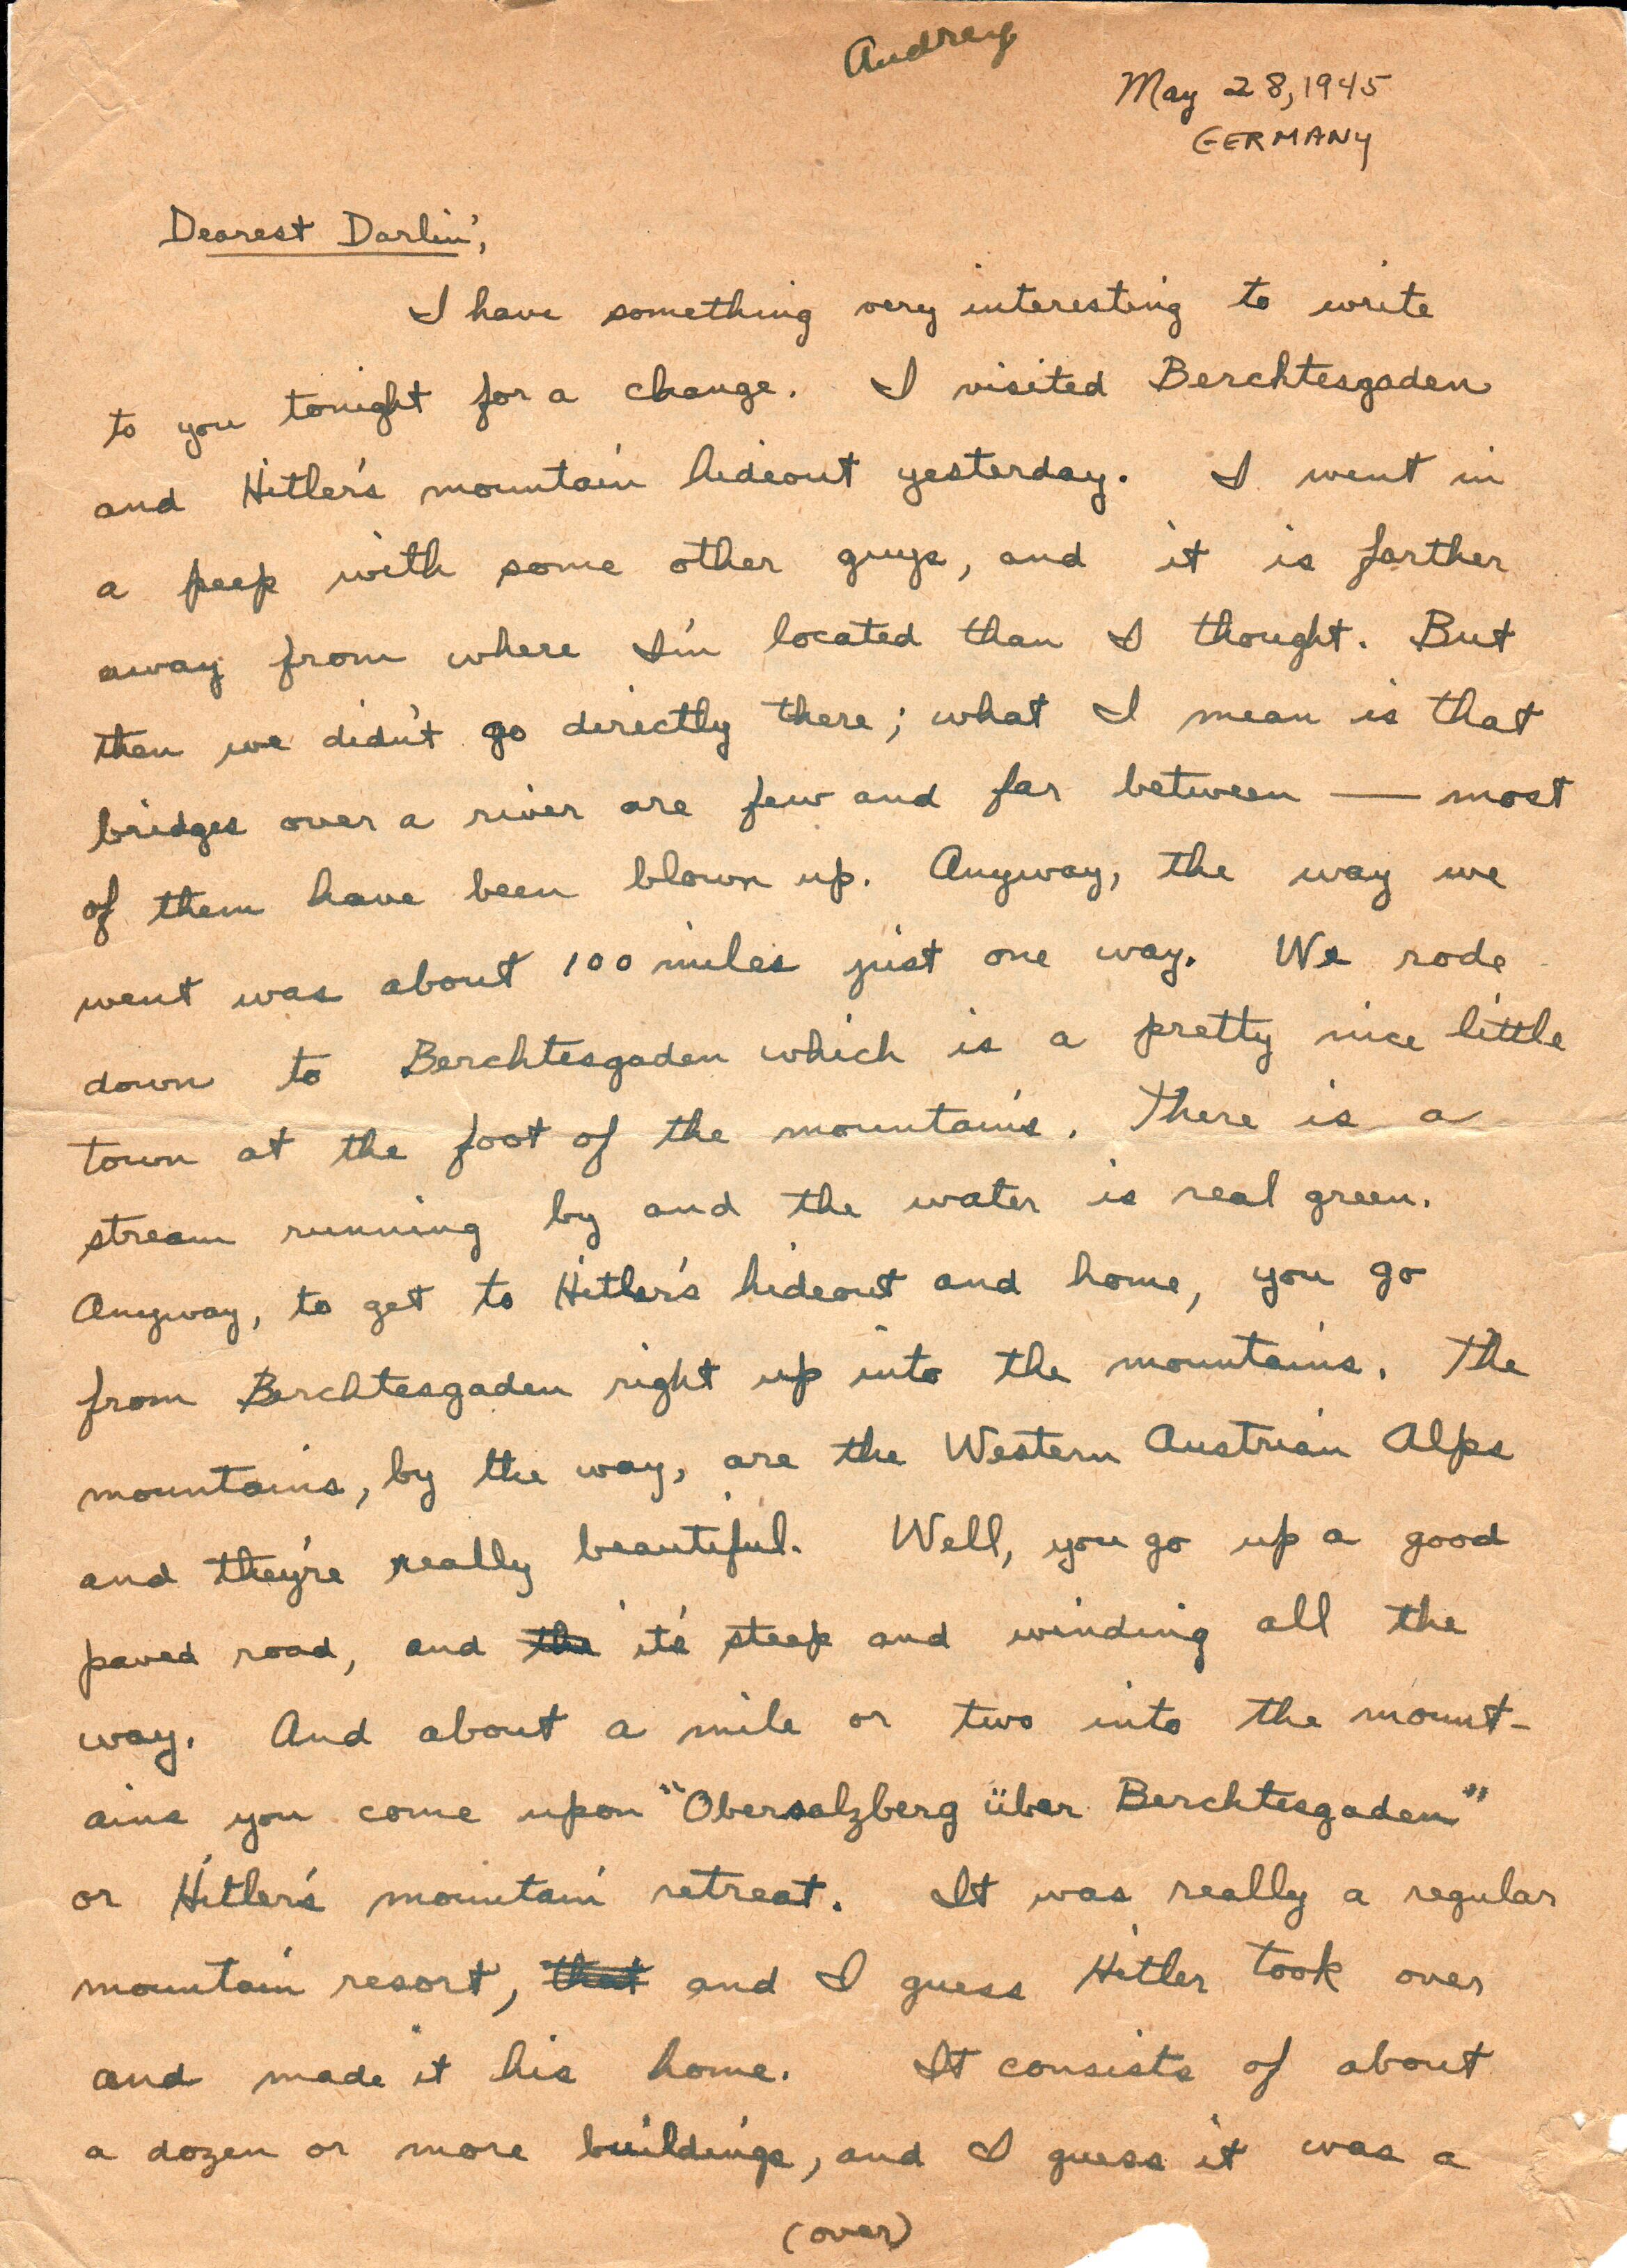 Audrey
May 28, 1945
GERMANY
Dearest Darlin',
I have something very interesting to write
to you tonight for a change. I visited Berchtesgaden
and Hitler's mountain hideout yesterday. I went in
a peep with some other guys, and it is farther
away from where I'm located than I thought. But
then we didn't go directly there; what I mean is that
bridges over a river are few and far between — most
of them have been blown up. Anyway, the way we
went was about 100 miles just one way. We rode
down to Berchtesgaden which is a pretty nice little
town at the foot of the mountains. There is a
stream running by and the water is real green.
Anyway, to get to Hitler's hideout and home, you go
from Berchtesgaden right up into the mountains. The
mountains, by the way, are the Western Austrian Alps
and they're really beautiful. Well, you go up a good
paved road, and the it's steep and winding all the
way. And about a mile or two into the mount-
ains you come upon "Obersalzberg über Berchtesgaden"
or Hitler's mountain retreat. It was really a regular
mountain resort, that and I guess Hitler took over
and made it his home. It consists of about
a dozen or more buildings, and I guess it was a
(over)